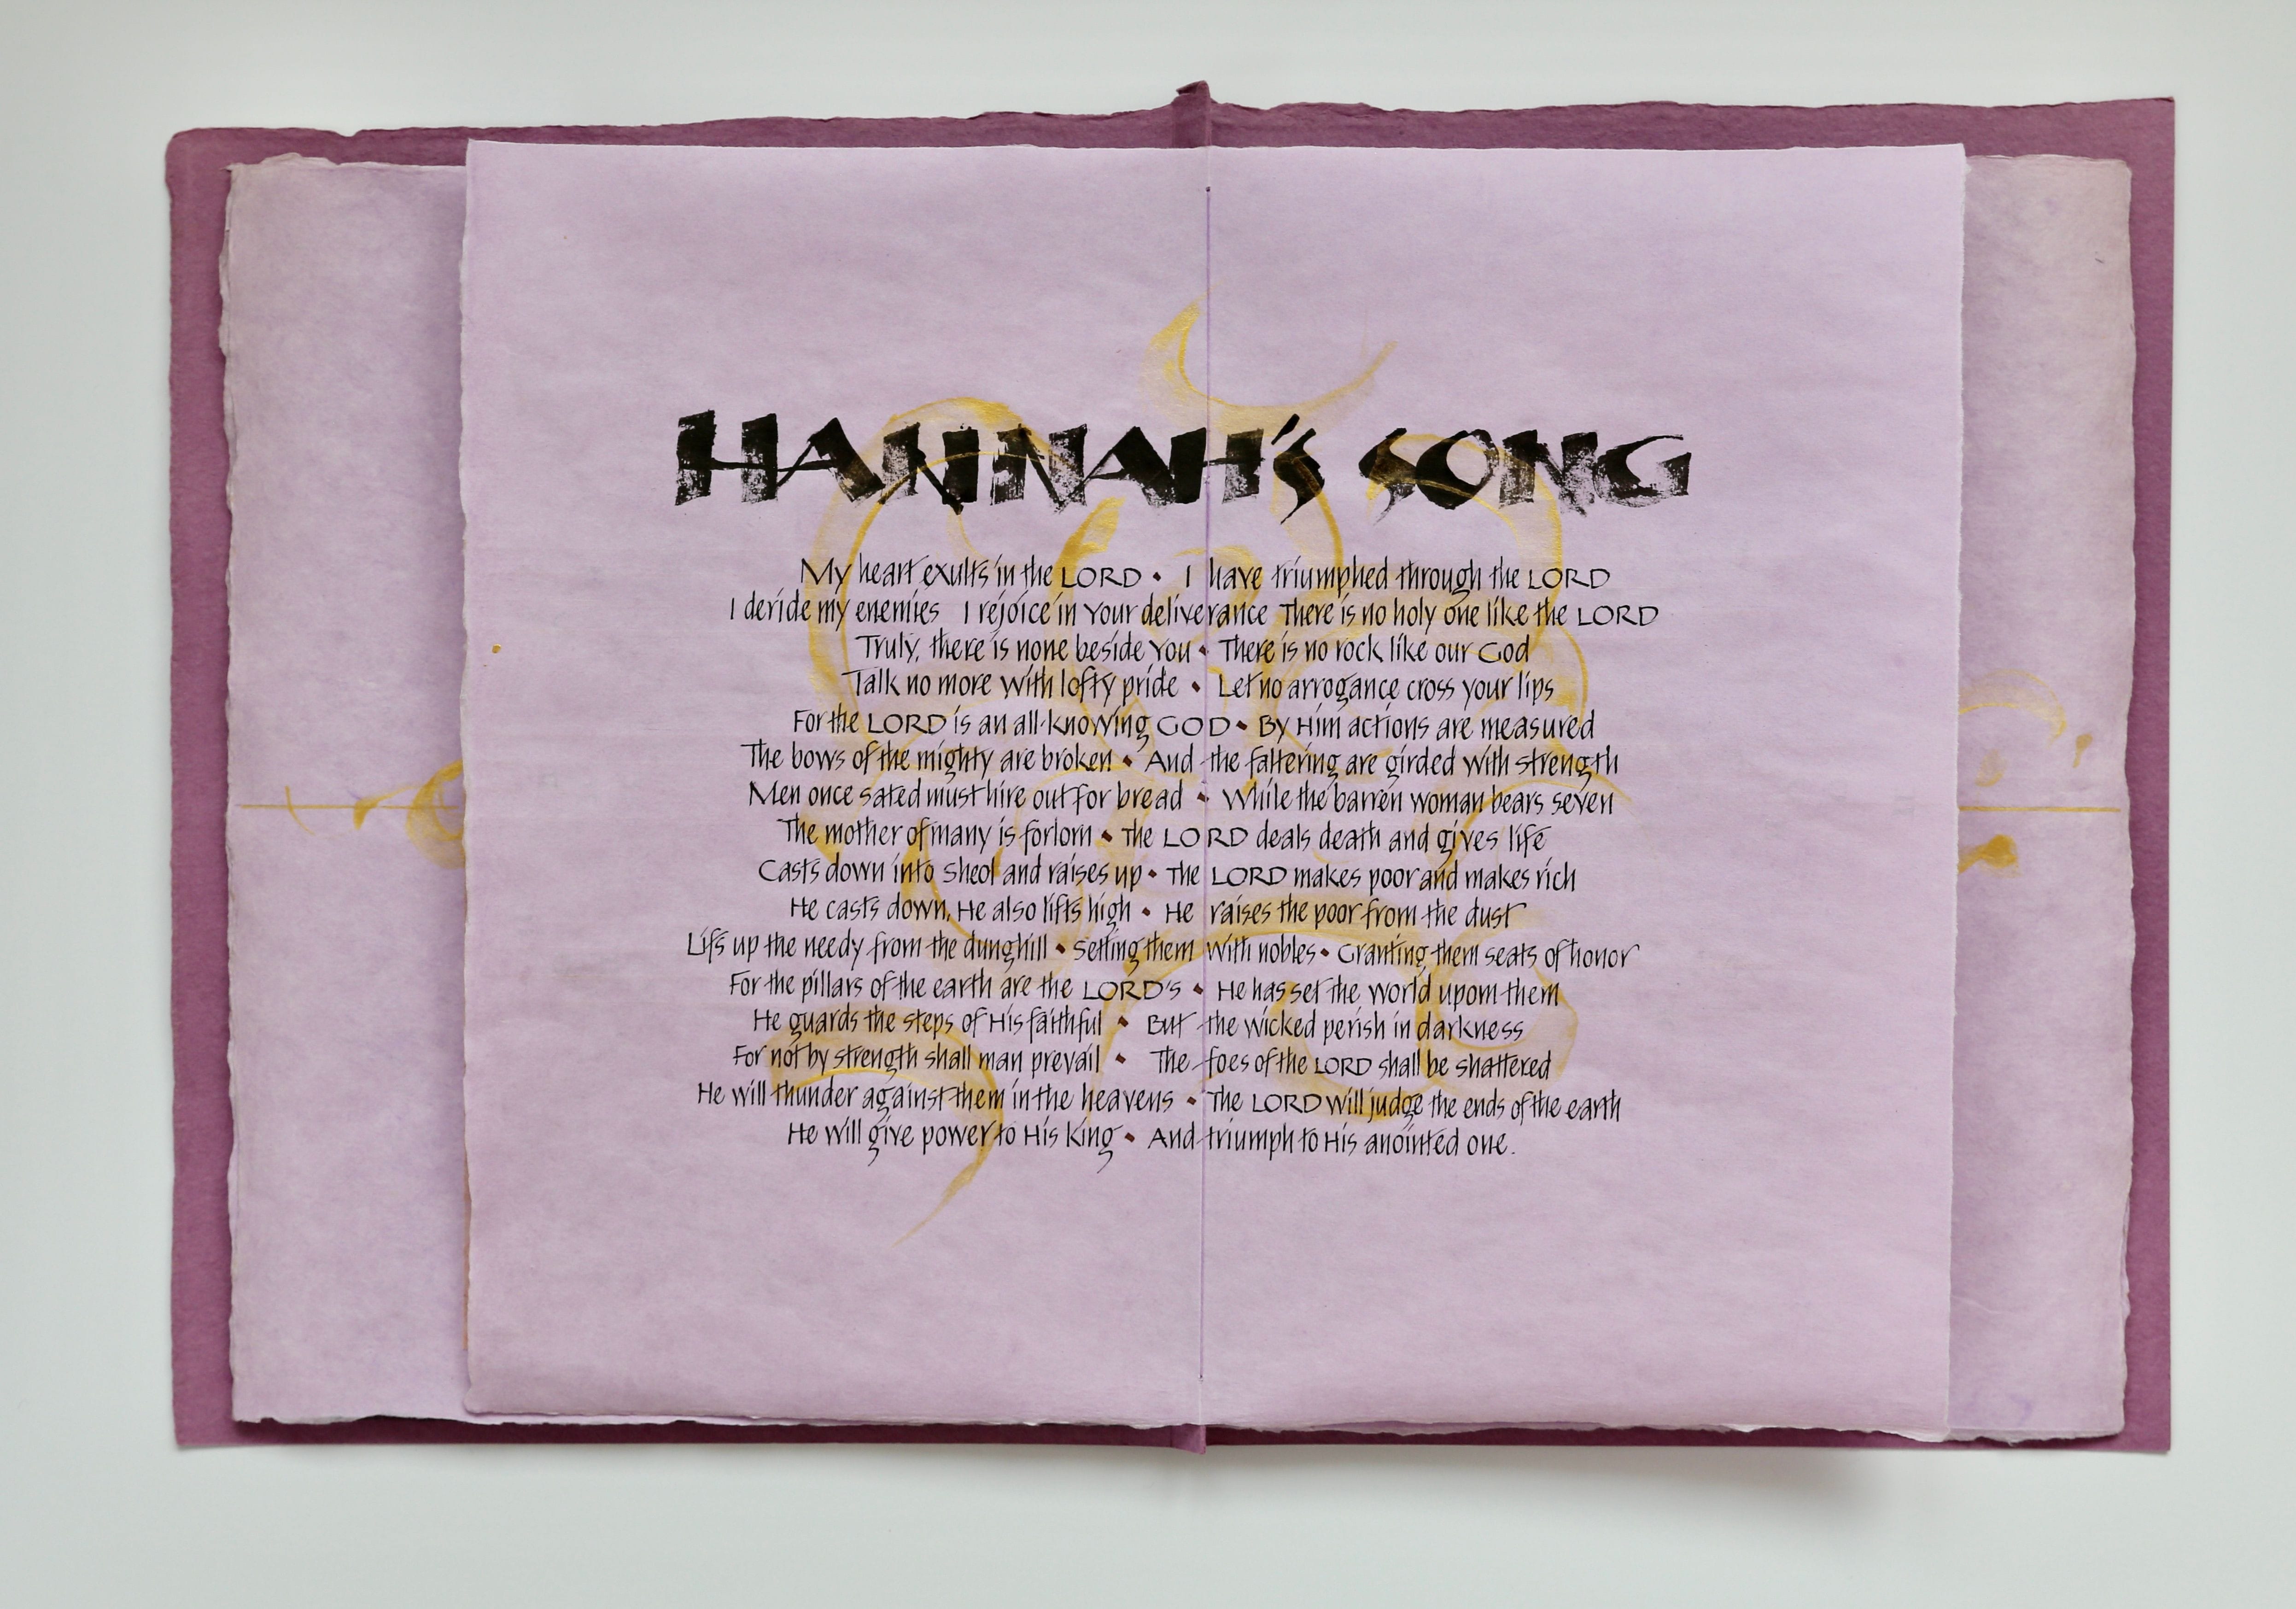 HANNAH'S SONG
My heart exults in the LORD • I have triumphed through the LORD
I deride my enemies I rejoice in Your deliverance There is no holy one like the LORD
Truly, there is none beside You • There is no rock like our God
Talk no more with lofty pride • Let no arrogance cross your lips
For the LORD is an all-knowing GOD • By Him actions are measured
The bows of the mighty are broken • And the faltering are girded with strength
Men once sated must hire out for bread • While the barren woman bears seven
The mother of many is forlorn • The LORD deals death and gives life
Casts down into Sheol and raises up • The LORD makes poor and makes rich
He casts down, He also lifts high • He raises the poor from the dust
Lifs up the needy from the dunghill • Setting them with nobles • Granting them seats of honor
For the pillars of the earth are the LORD'S • He has set the world upom them
He guards the steps of His faithful • But the wicked perish in darkness
For not by strength shall man prevail • The foes of the LORD shall be shattered
He will thunder against them in the heavens • The LORD will judge the ends of the earth
He will give power to His King • And triumph to His anointed one.